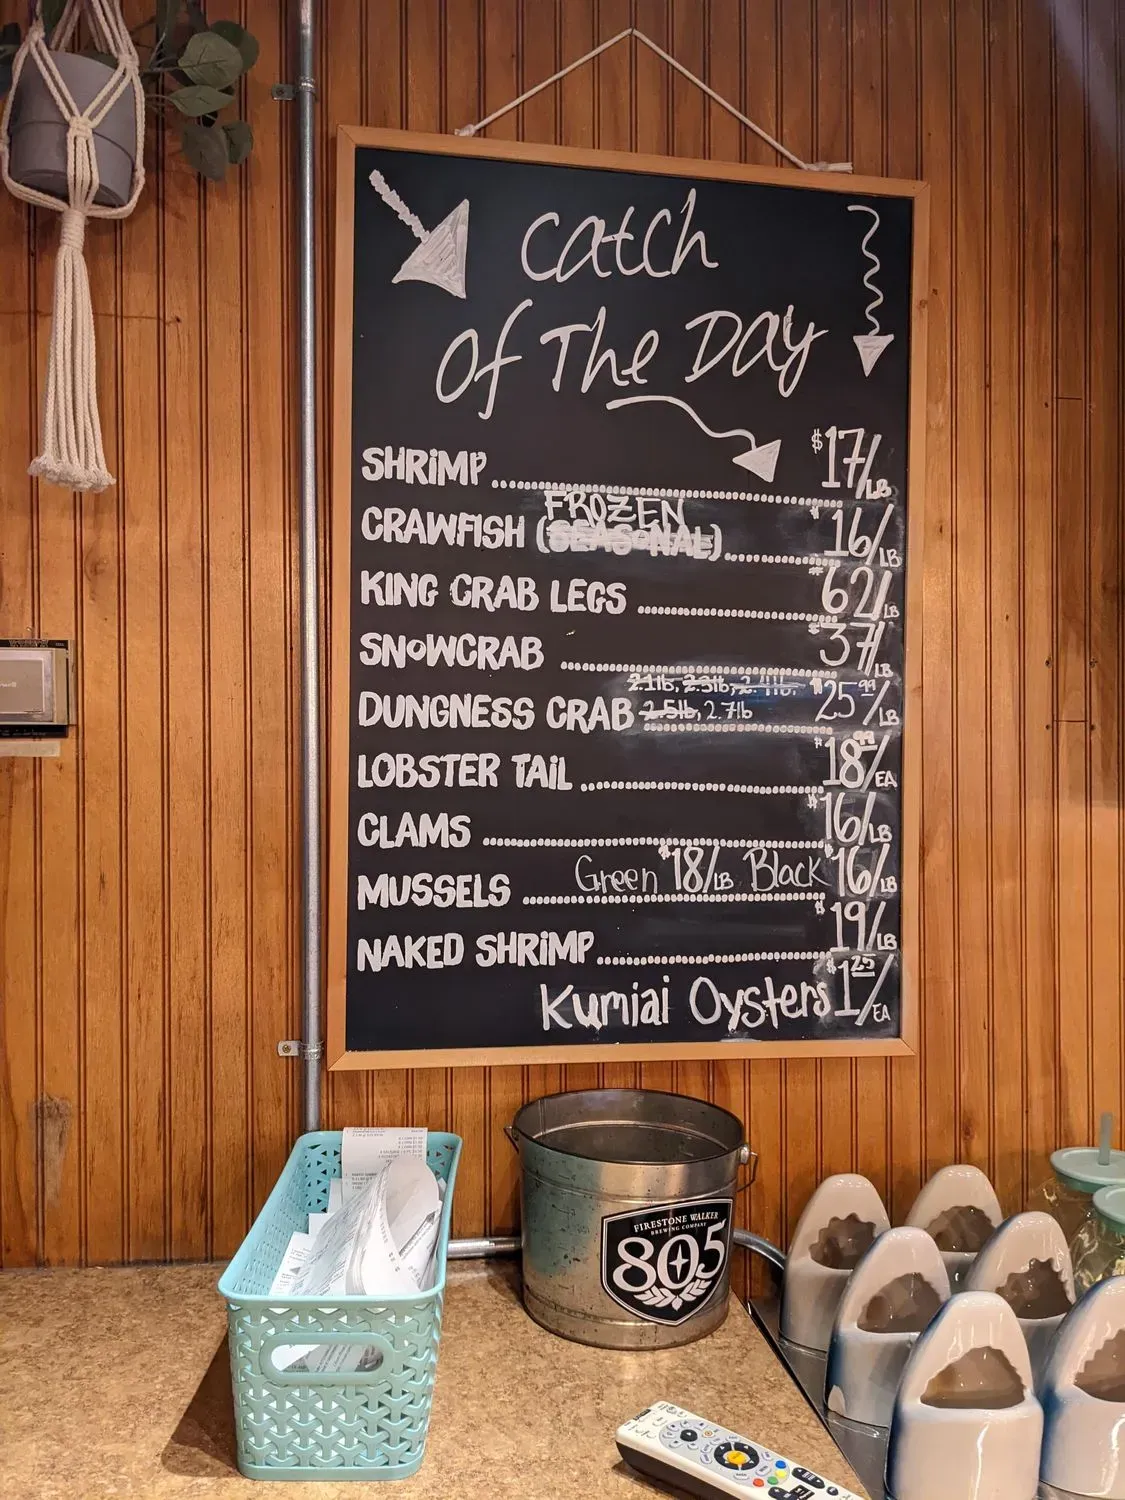 Catch
Of The Day
SHRiMP $17/LB
FROZEN
CRAWFISH (SEASONAL) $16/LB
KING CRAB LEGS $62/LB
SNOWCRAB $37/LB
2.1lb, 2.3lb, 2.4lb, $25.99/LB
DUNGNESS CRAB 2.5lb, 2.7lb
LOBSTER TAiL $18.99/EA
CLAMS $16/LB
MUSSELS Green $18/LB Black $16/LB
NAKED SHRiMP $19/LB
Kumiai Oysters $1.25/EA
FIRESTONE WALKER
BREWING COMPANY
805